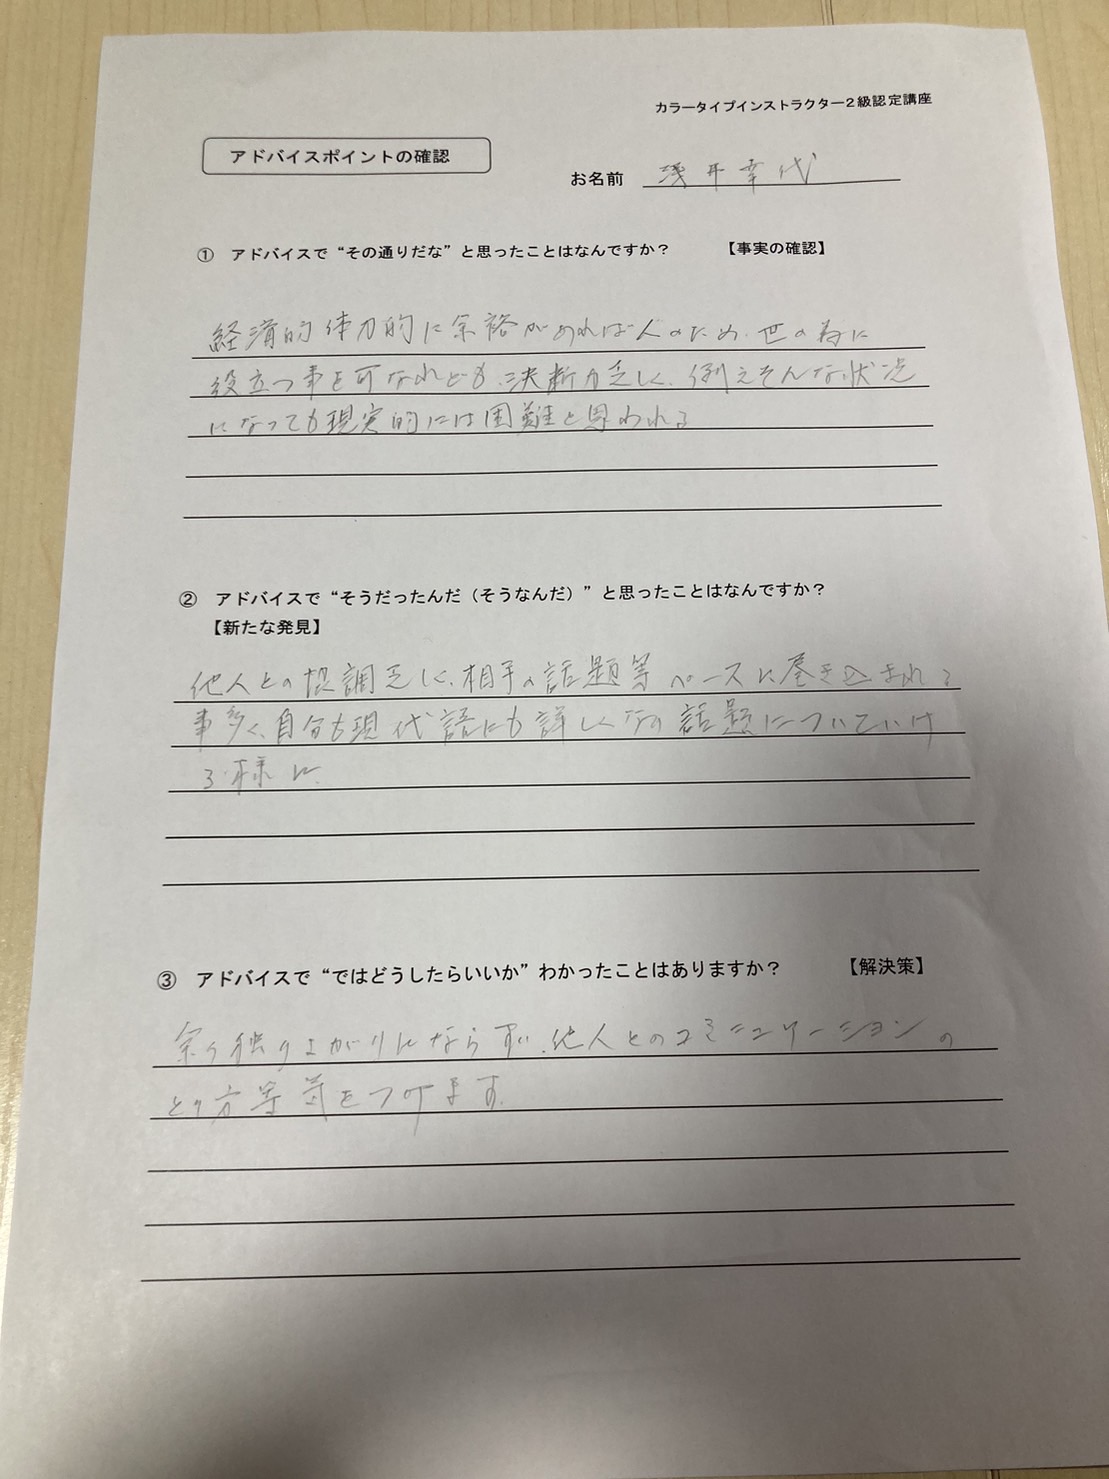 カラータイプインストラクター２級認定講座
アドバイスポイントの確認
お名前 浅井幸代
① アドバイスで“その通りだな”と思ったことはなんですか？ 【事実の確認】
経済的体力的に余裕があれば人のため、世の為に
役立つ事を可なれども、決断力乏しく、例えそんな状況
になっても現実的には困難と思われる
② アドバイスで“そうだったんだ（そうなんだ）”と思ったことはなんですか？
【新たな発見】
他人との協調乏しく、相手の話題等ペースに巻き込まれる
事多く、自分も現代語にも詳しく の話題についていけ
る様に
③ アドバイスで“ではどうしたらいいか”わかったことはありますか？ 【解決策】
余り独りよがりにならずに、他人とのコミニュケーションの
とり方等気をつけます。